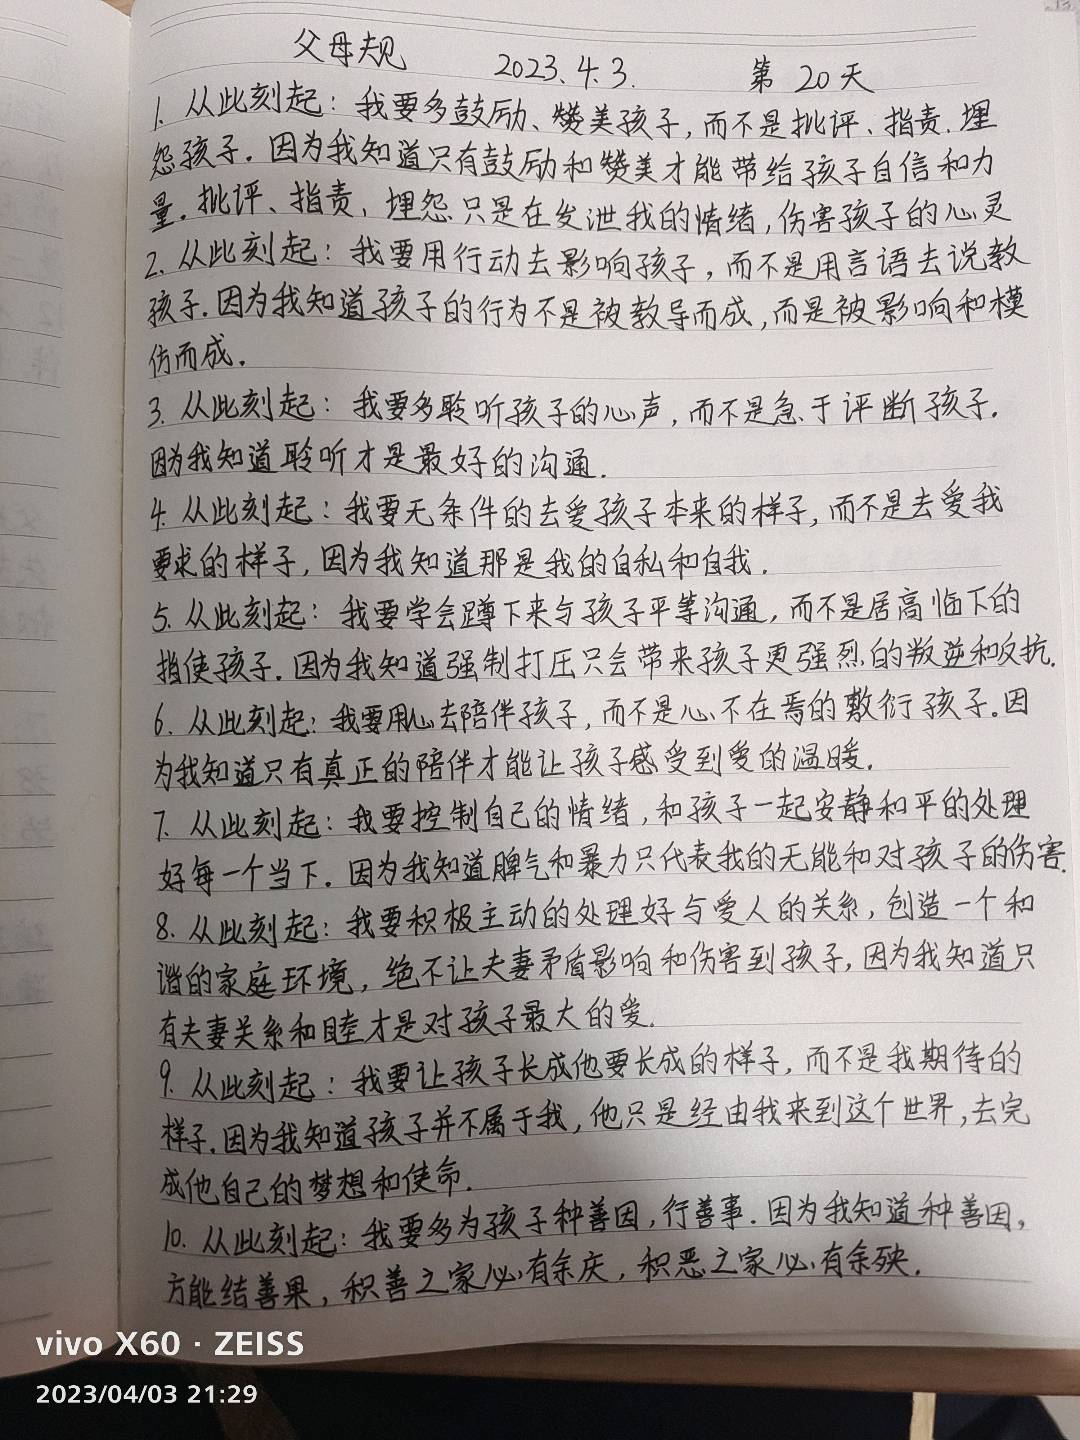 父母规 2023.4.3. 第 20 天
1. 从此刻起：我要多鼓励、赞美孩子，而不是批评、指责、埋
怨孩子。因为我知道只有鼓励和赞美才能带给孩子自信和力
量。批评、指责、埋怨只是在发泄我的情绪，伤害孩子的心灵
2. 从此刻起：我要用行动去影响孩子，而不是用言语去说教
孩子。因为我知道孩子的行为不是被教导而成，而是被影响和模
仿而成。
3. 从此刻起：我要多聆听孩子的心声，而不是急于评断孩子。
因为我知道聆听才是最好的沟通。
4. 从此刻起：我要无条件的去爱孩子本来的样子，而不是去爱我
要求的样子，因为我知道那是我的自私和自我。
5. 从此刻起：我要学会蹲下来与孩子平等沟通，而不是居高临下的
指使孩子。因为我知道强制打压只会带来孩子更强烈的叛逆和反抗。
6. 从此刻起：我要用心去陪伴孩子，而不是心不在焉的敷衍孩子。因
为我知道只有真正的陪伴才能让孩子感受到爱的温暖。
7. 从此刻起：我要控制自己的情绪，和孩子一起安静和平的处理
好每一个当下。因为我知道脾气和暴力只代表我的无能和对孩子的伤害。
8. 从此刻起：我要积极主动的处理好与爱人的关系，创造一个和
谐的家庭环境，绝不让夫妻矛盾影响和伤害到孩子，因为我知道只
有夫妻关系和睦才是对孩子最大的爱。
9. 从此刻起：我要让孩子长成他要长成的样子，而不是我期待的
样子。因为我知道孩子并不属于我，他只是经由我来到这个世界，去完
成他自己的梦想和使命。
10. 从此刻起：我要多为孩子种善因，行善事。因为我知道种善因，
方能结善果，积善之家必有余庆，积恶之家必有余殃。
vivo X60 · ZEISS
2023/04/03 21:29